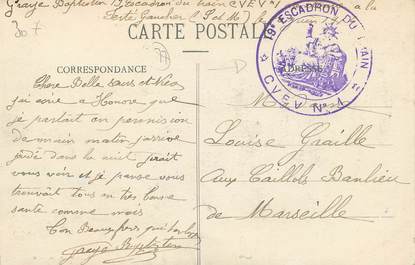 Graye Baptistin 19 Escadron du train CVEV 1 a la
Ferté Gaucher (S et M) le
CARTE POSTALE
19e ESCADRON DU TRAIN
CVEV N 1
ADRESSE
CORRESPONDANCE
Chere Belle sœur et
jai écrie a Honore que
je partait en permission
demain matin
dans la nuit jirait
vous voir et je panse vous
trouvait tous en tres bonne
sante comme mois
Ton Beau frere qui
Graye Baptistin
Louise Graille
aux Caillols Banlieu
de Marseille